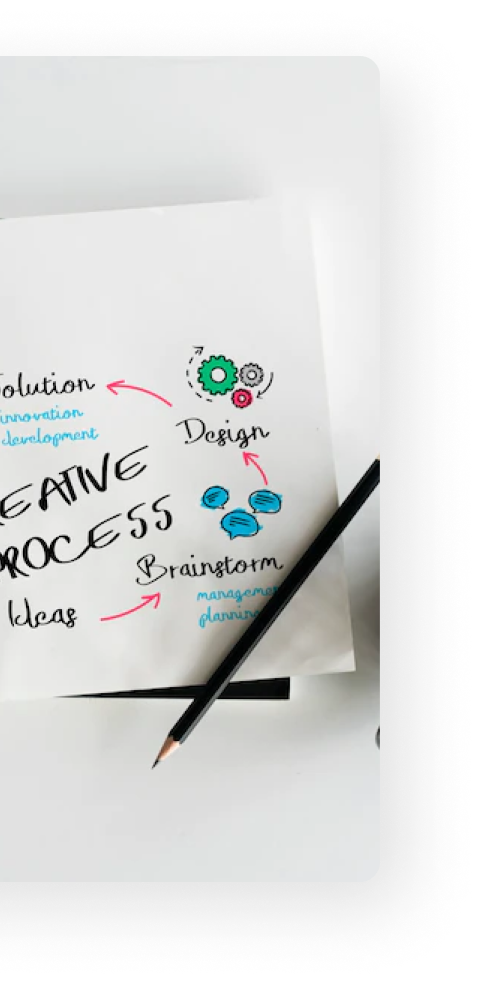 olution
innovation
development
Design
EATIVE
PROCESS
Brainstorm
planning
Ideas